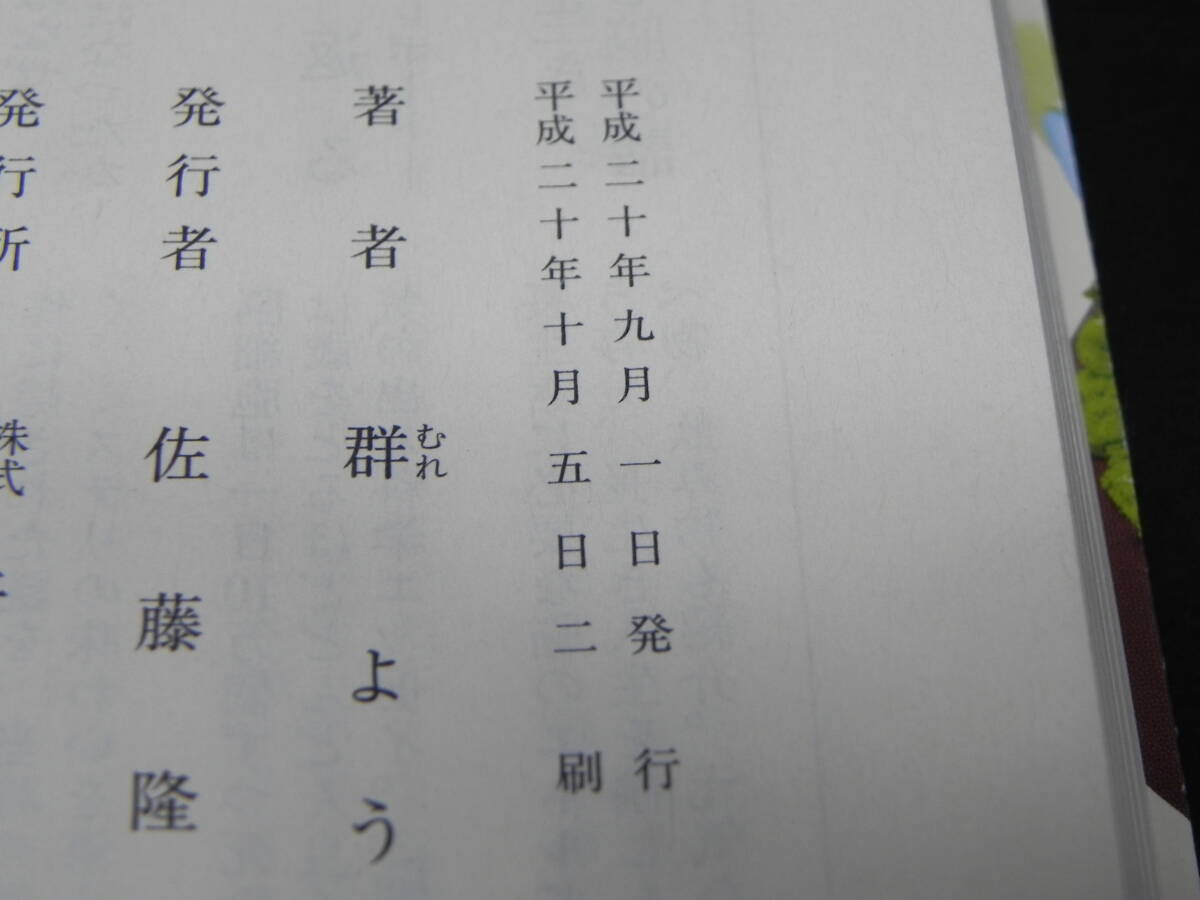 平成二十年九月一日発行
平成二十年十月五日二刷
著者 群よう
むれ
発行者 佐藤隆
発行所 株式